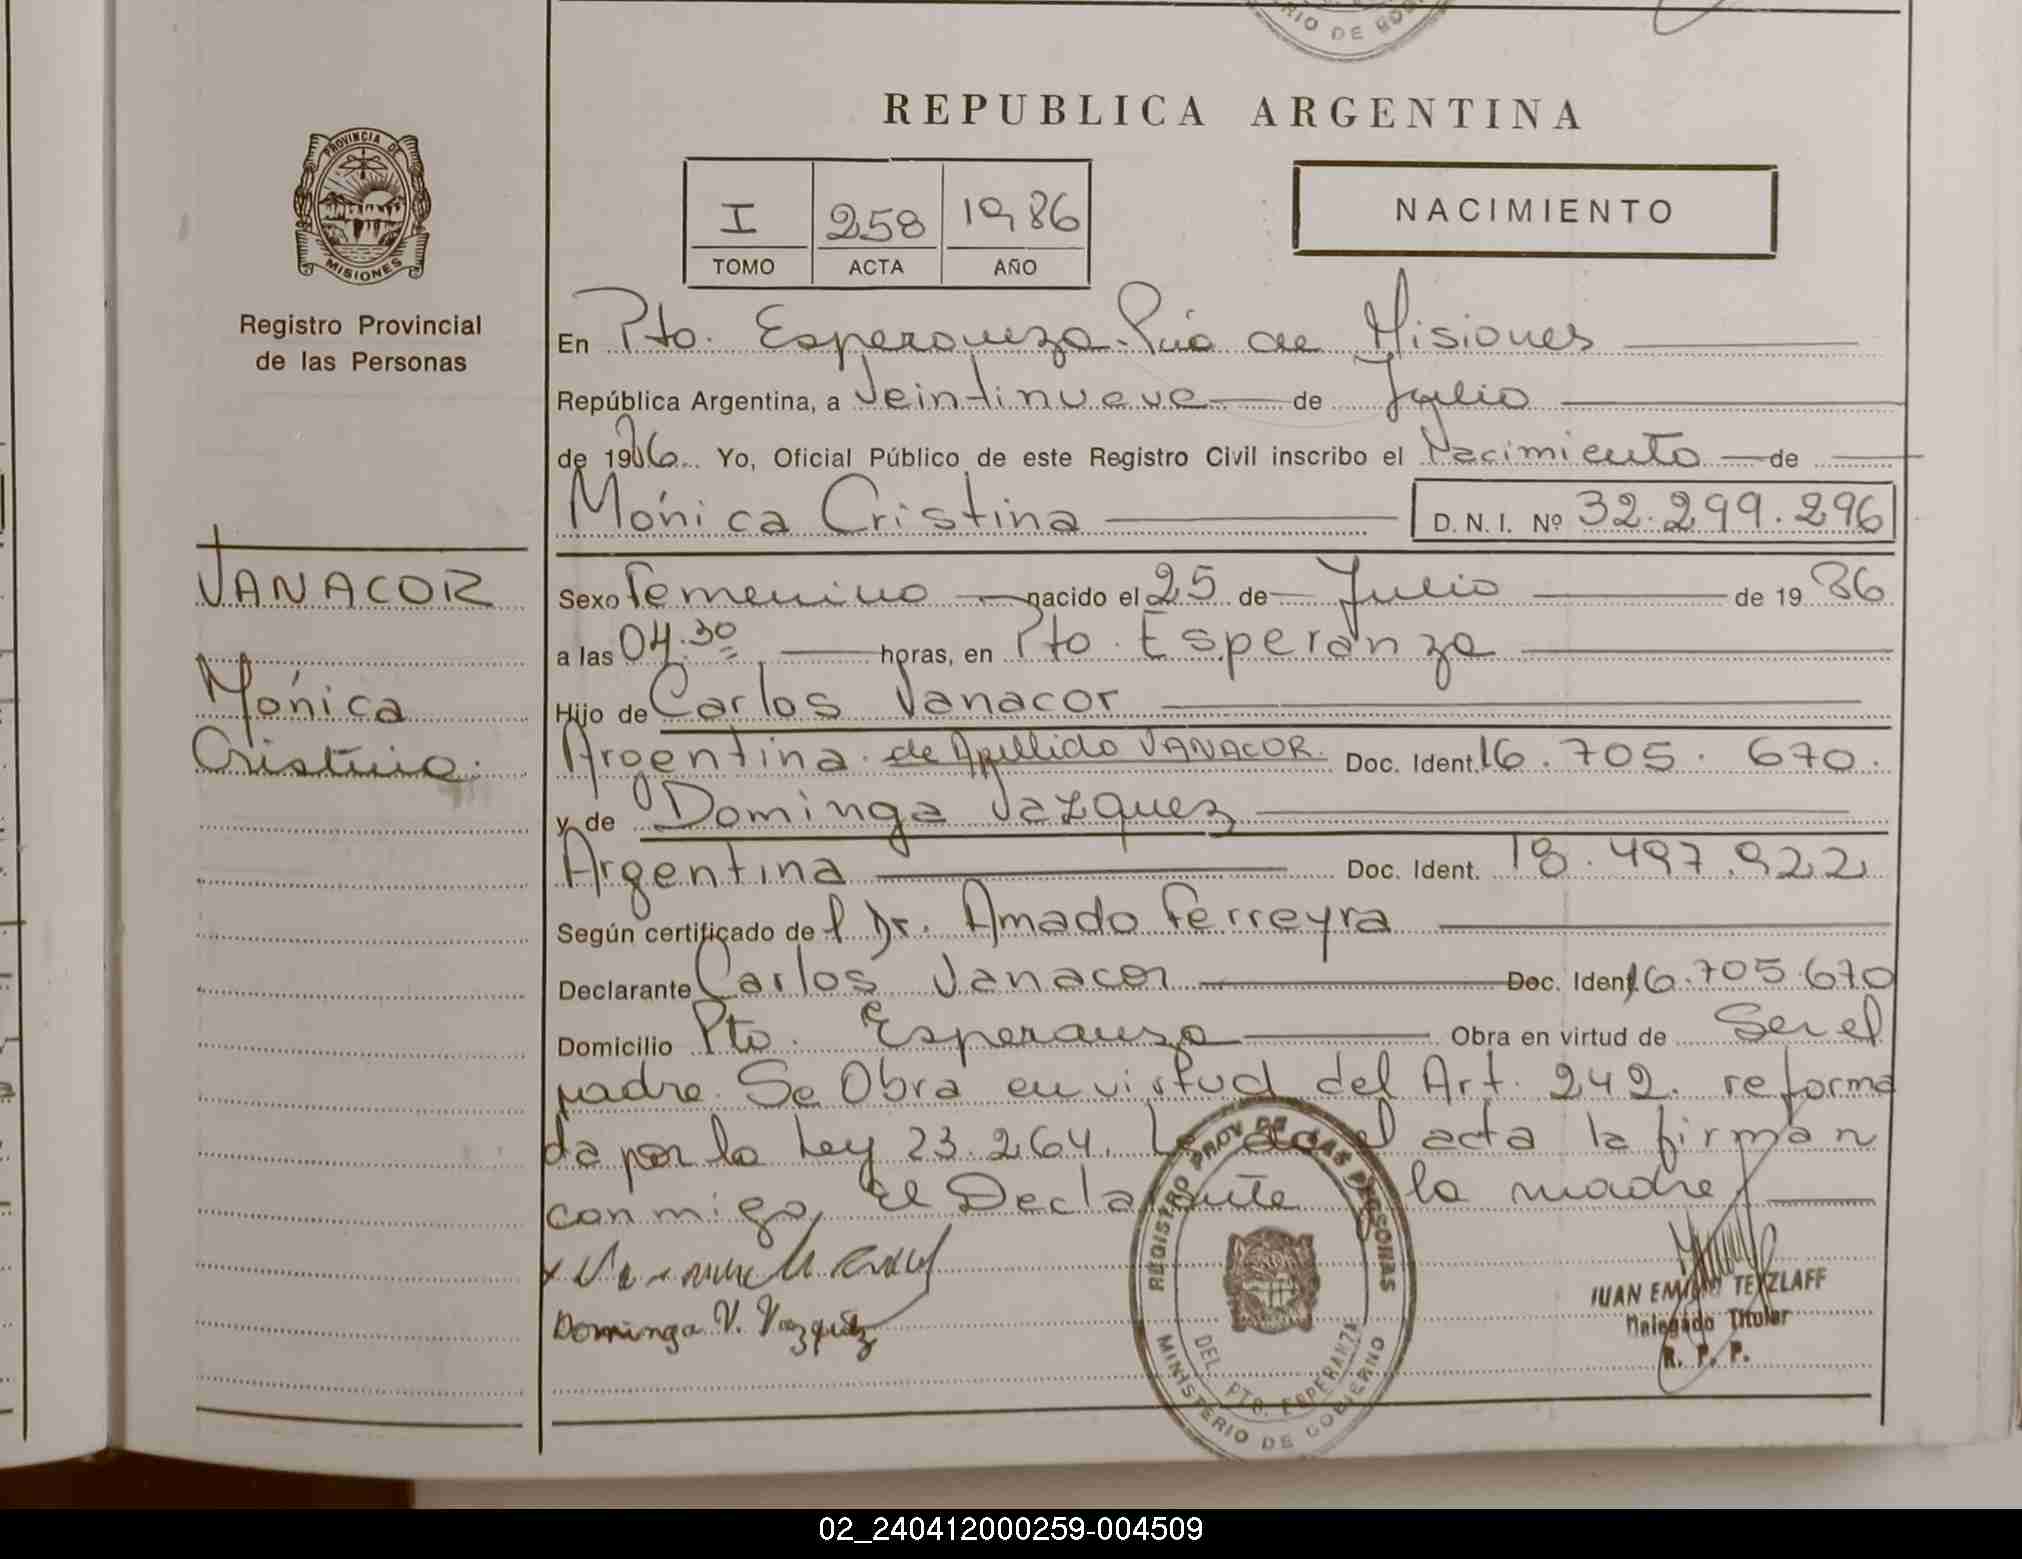 RIO DE GOB
REPUBLICA ARGENTINA
PROVINCIA DE
MISIONES
Registro Provincial
de las Personas
I 258 1986
TOMO ACTA AÑO
NACIMIENTO
En Pto. Esperanza Pcia de Misiones
República Argentina, a Veintinueve de Julio
de 1986 Yo, Oficial Público de este Registro Civil inscribo el Nacimiento de
Mónica Cristina D. N. I. Nº 32.299.296
VANACOR
Mónica
Cristina.
Sexo Femenino nacido el 25 de Julio de 19 86
a las 04.30 horas, en Pto. Esperanza
Hijo de Carlos Vanacor
Argentina. de Apellido VANACOR. Doc. Ident. 16.705.670.
y de Dominga Vazquez
Argentina Doc. Ident. 18.497.922
Según certificado de l Dr. Amado Ferreyra
Declarante Carlos Vanacor Doc. Ident. 16.705.670
Domicilio Pto. Esperanza Obra en virtud de Ser el
padre. Se Obra en virtud del Art. 242. reforma
da por la Ley 23.264. el acta la firman
conmigo, el Declarante la madre
Dominga V. Vazquez
REGISTRO PROV DE LAS PERSONAS
DEL. PTO. ESPERANZA
MINISTERIO DE GOBIERNO
JUAN EMILIO TETZLAFF
Delegado Titular
R. P. P.
02_240412000259-004509